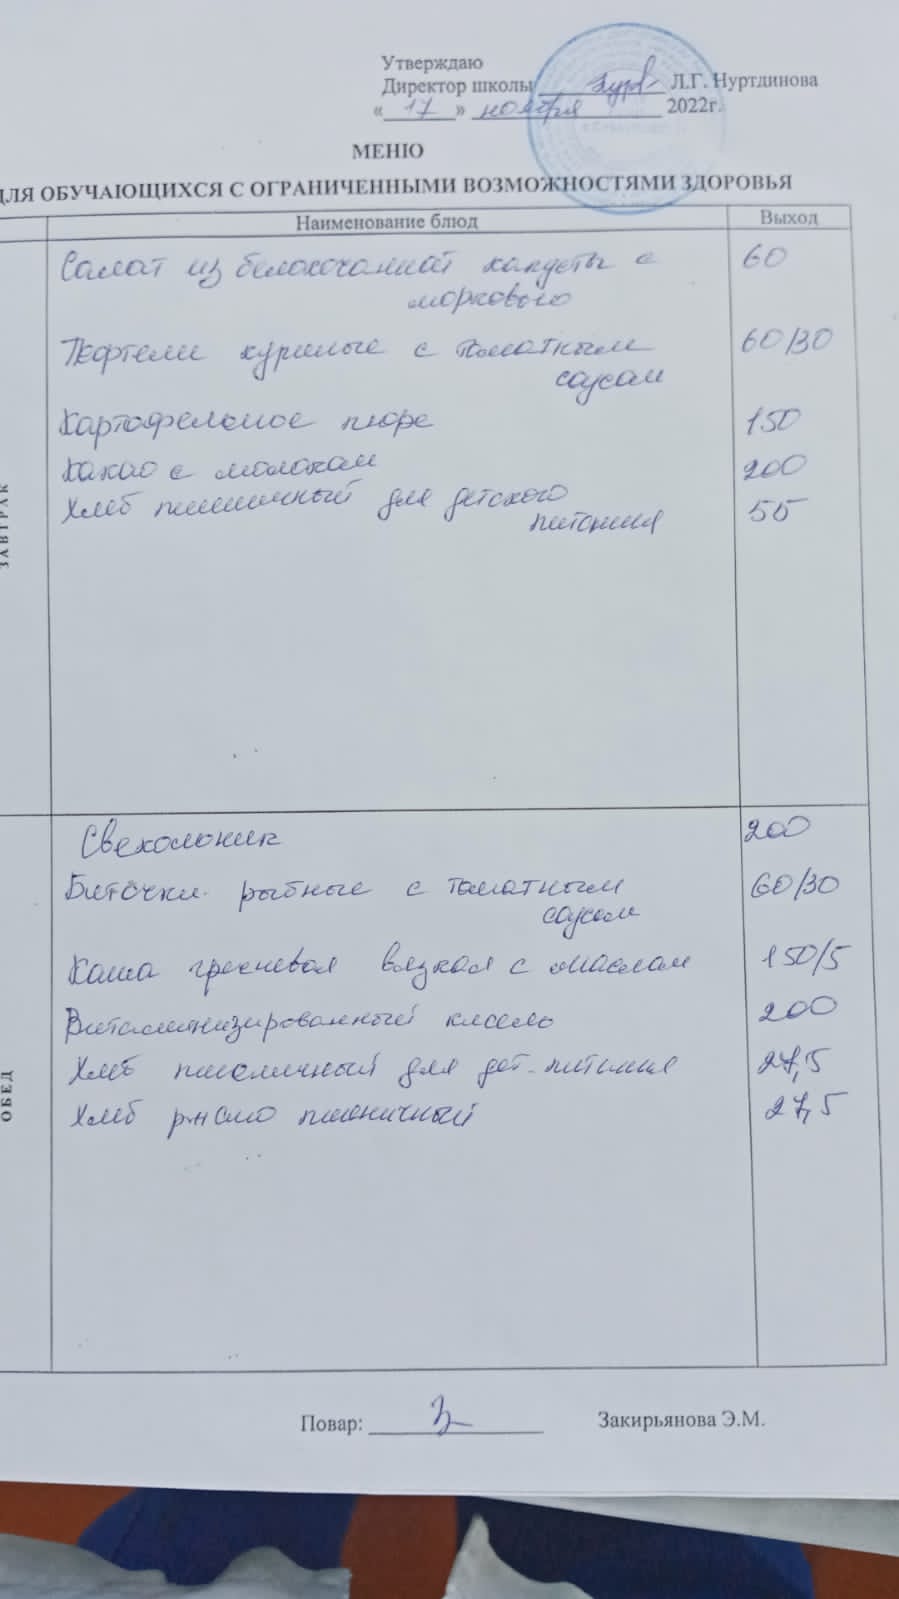 Утверждаю
Директор школы Л.Г. Нуртдинова
« 17 » ноября 2022г.
МЕНЮ
ДЛЯ ОБУЧАЮЩИХСЯ С ОГРАНИЧЕННЫМИ ВОЗМОЖНОСТЯМИ ЗДОРОВЬЯ
Наименование блюд Выход
ЗАВТРАК
Салат из белокочанной капусты с 60
морковью
Тефтели куриные с томатным 60/30
соусом
Картофельное пюре 150
Какао с молоком 200
Хлеб пшеничный для детского 55
питания
ОБЕД
Свекольник 200
Биточки рыбные с томатным 60/30
соусом
Каша гречневая вязкая с маслом 150/5
Витаминизированный кисель 200
Хлеб пшеничный для дет. питания 27,5
Хлеб ржано пшеничный 27,5
Повар: Закирьянова Э.М.